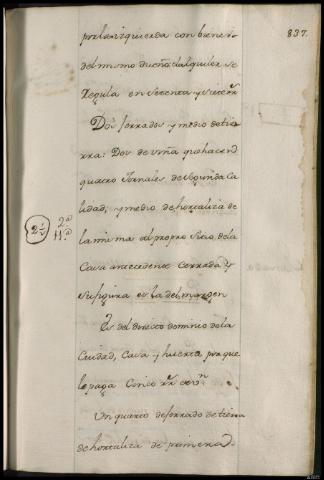 837.
por la izquierda con bienes
del mismo dueño el alquiler se
Regula en setenta y siete rr.
Dos ferrados y medio de tie
rra: Dos de viña que hacen
quatro Jornales de segunda Ca
lidad, y medio de hortaliza de
la misma al propio sitio, de la
Casa antecedente Cerrada y
su figura es la del margen
2.ª
11.ª
Es del directo dominio de la
Ciudad, Casa y huerta porque
le paga Cinco rr. de vn.
Un quarto de ferrado de tierra
de hortaliza de primera